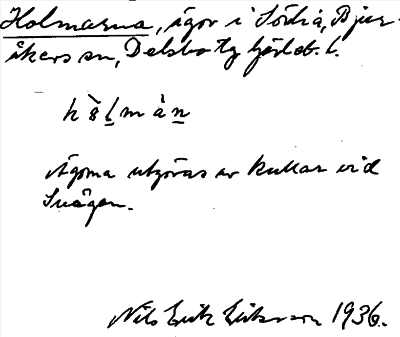 Holmarna, ägor i Södra, Bjur-
åkers sn, Delsbo tg Gävleb. l.
hòlmàn
Ägorna utgöras av kullar vid
Svågan.
Nils Erik Eriksson 1936.